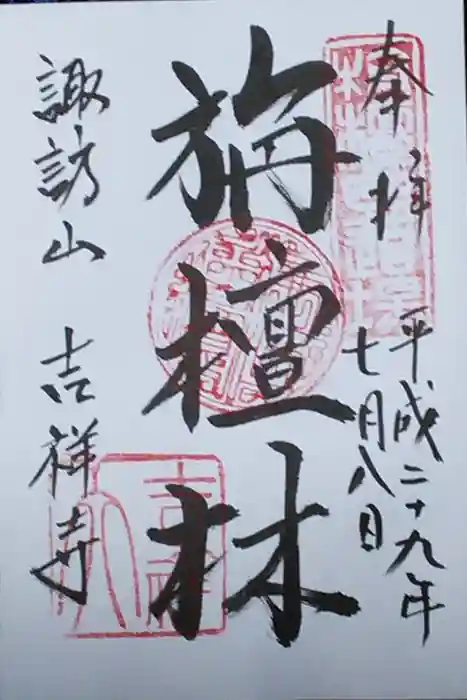 奉拝
平成二十九年
七月八日
旃檀林
諏訪山 吉祥寺